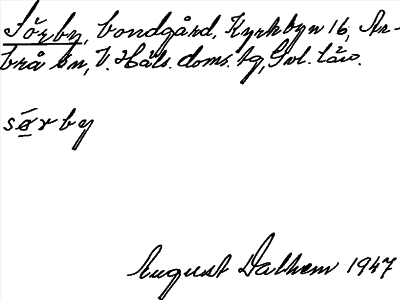 Sörby, bondgård, Kyrkbyn 16, Ar-
brå sn, V. Häls. doms. bg, Gvl. län.
sø̄rby
August Dalhem 1947